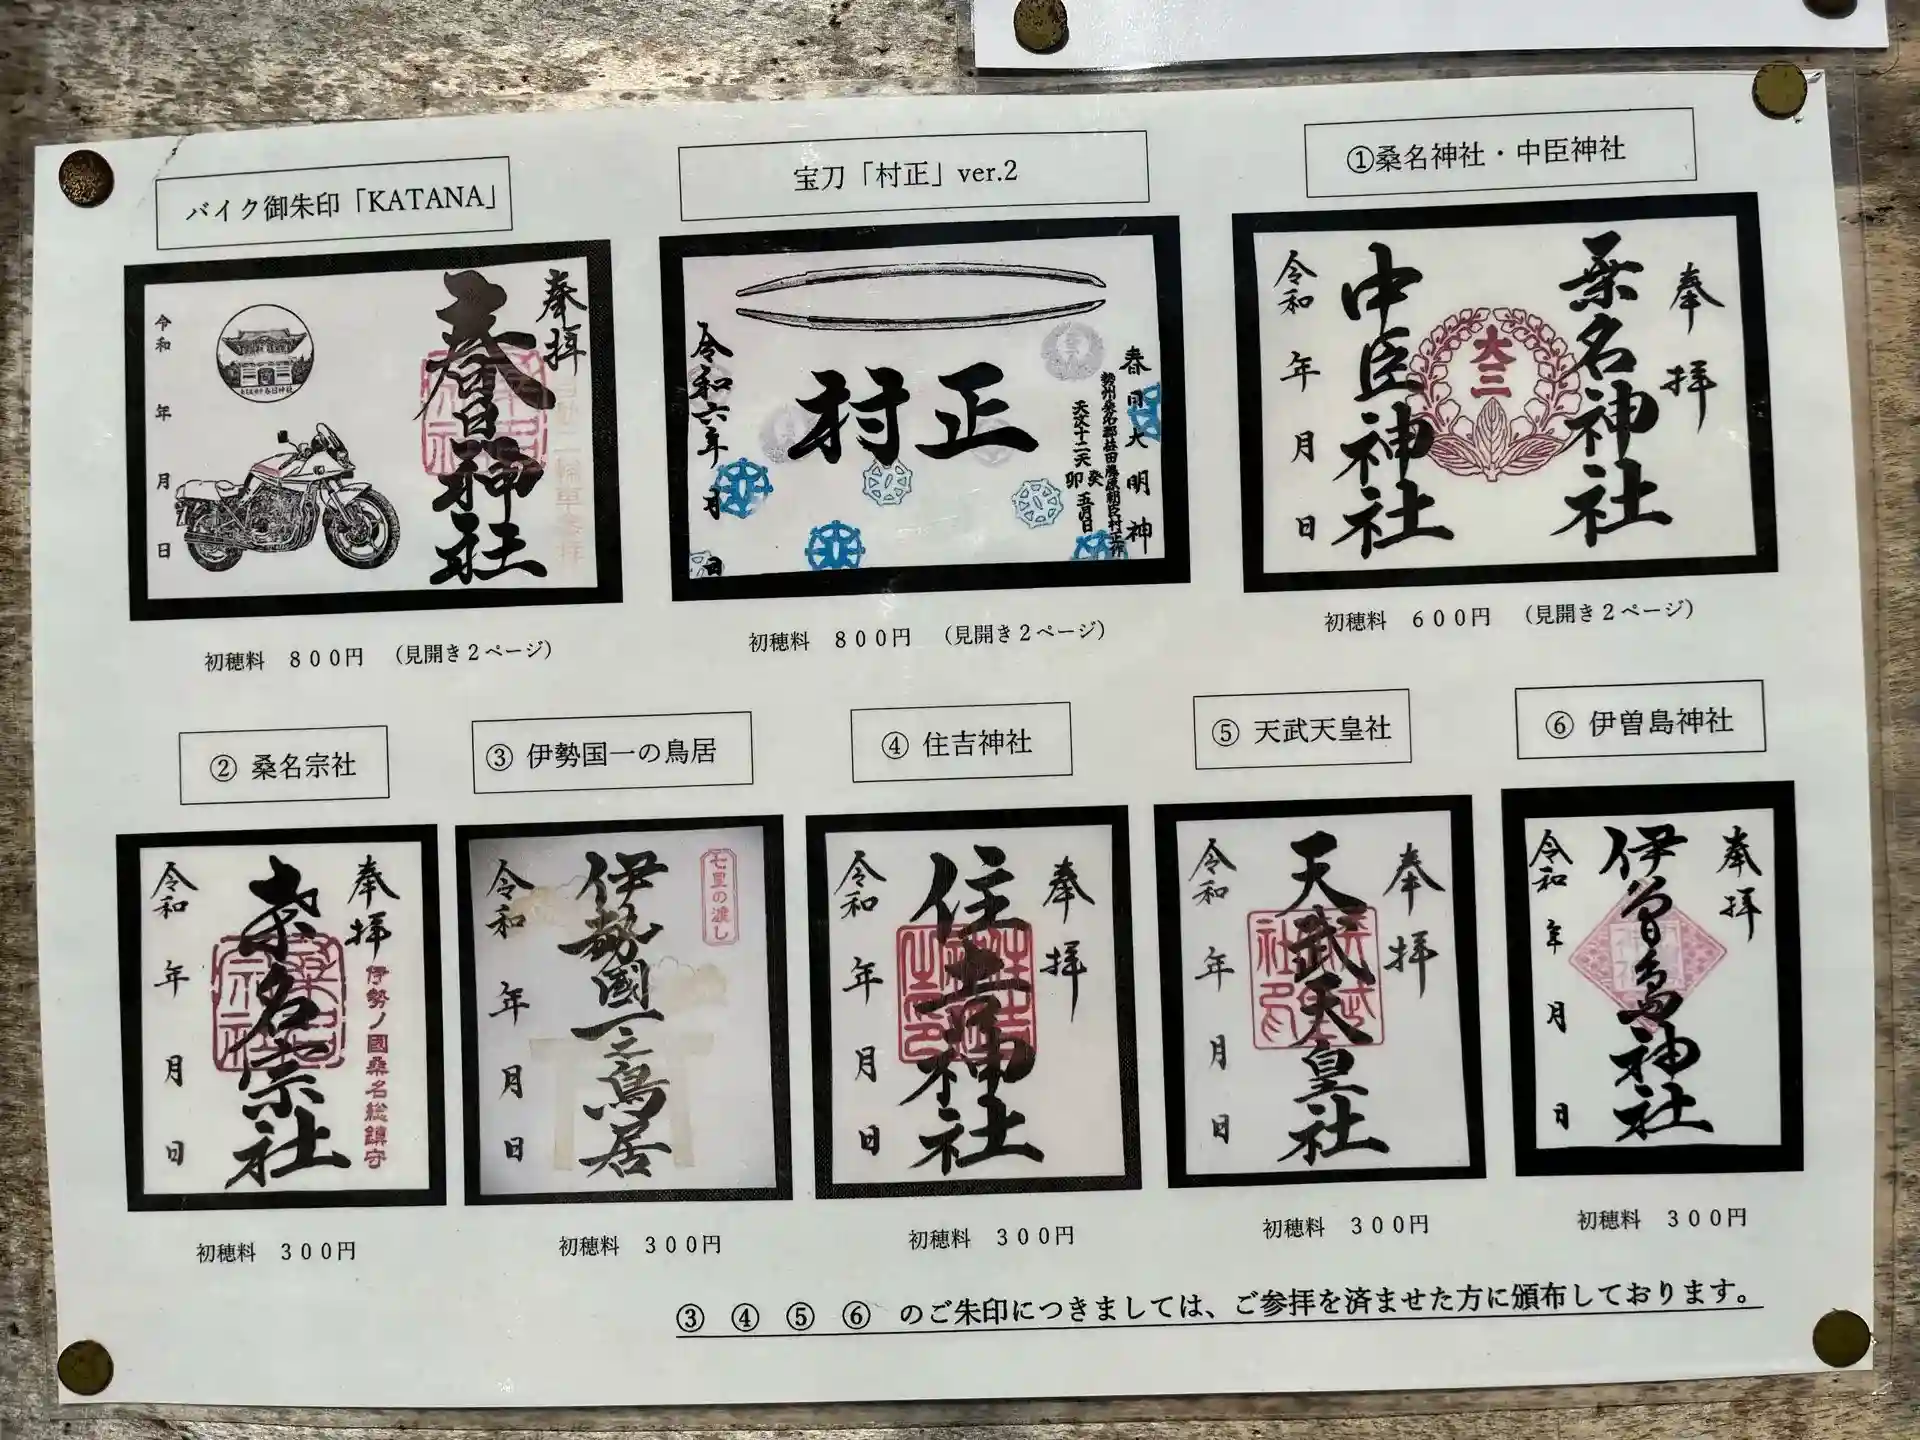 バイク御朱印「KATANA」
奉拝
春日神社
令和 年 月 日
初穂料 800円 (見開き2ページ)
宝刀「村正」ver.2
春日大明神
勢州桑名郡益田庄藤原朝臣村正作
天文十二天癸卯五月日
村正
令和六年 月 日
初穂料 800円 (見開き2ページ)
①桑名神社・中臣神社
奉拝
桑名神社
大三
中臣神社
令和 年 月 日
初穂料 600円 (見開き2ページ)
② 桑名宗社
奉拝
伊勢ノ國桑名総鎮守
桑名宗社
令和 年 月 日
初穂料 300円
③ 伊勢国一の鳥居
七里の渡し
伊勢國一之鳥居
令和 年 月 日
初穂料 300円
④ 住吉神社
奉拝
住吉神社
令和 年 月 日
初穂料 300円
⑤ 天武天皇社
奉拝
天武天皇社
令和 年 月 日
初穂料 300円
⑥ 伊曽島神社
奉拝
伊曽島神社
令和 年 月 日
初穂料 300円
③ ④ ⑤ ⑥ のご朱印につきましては、ご参拝を済ませた方に頒布しております。